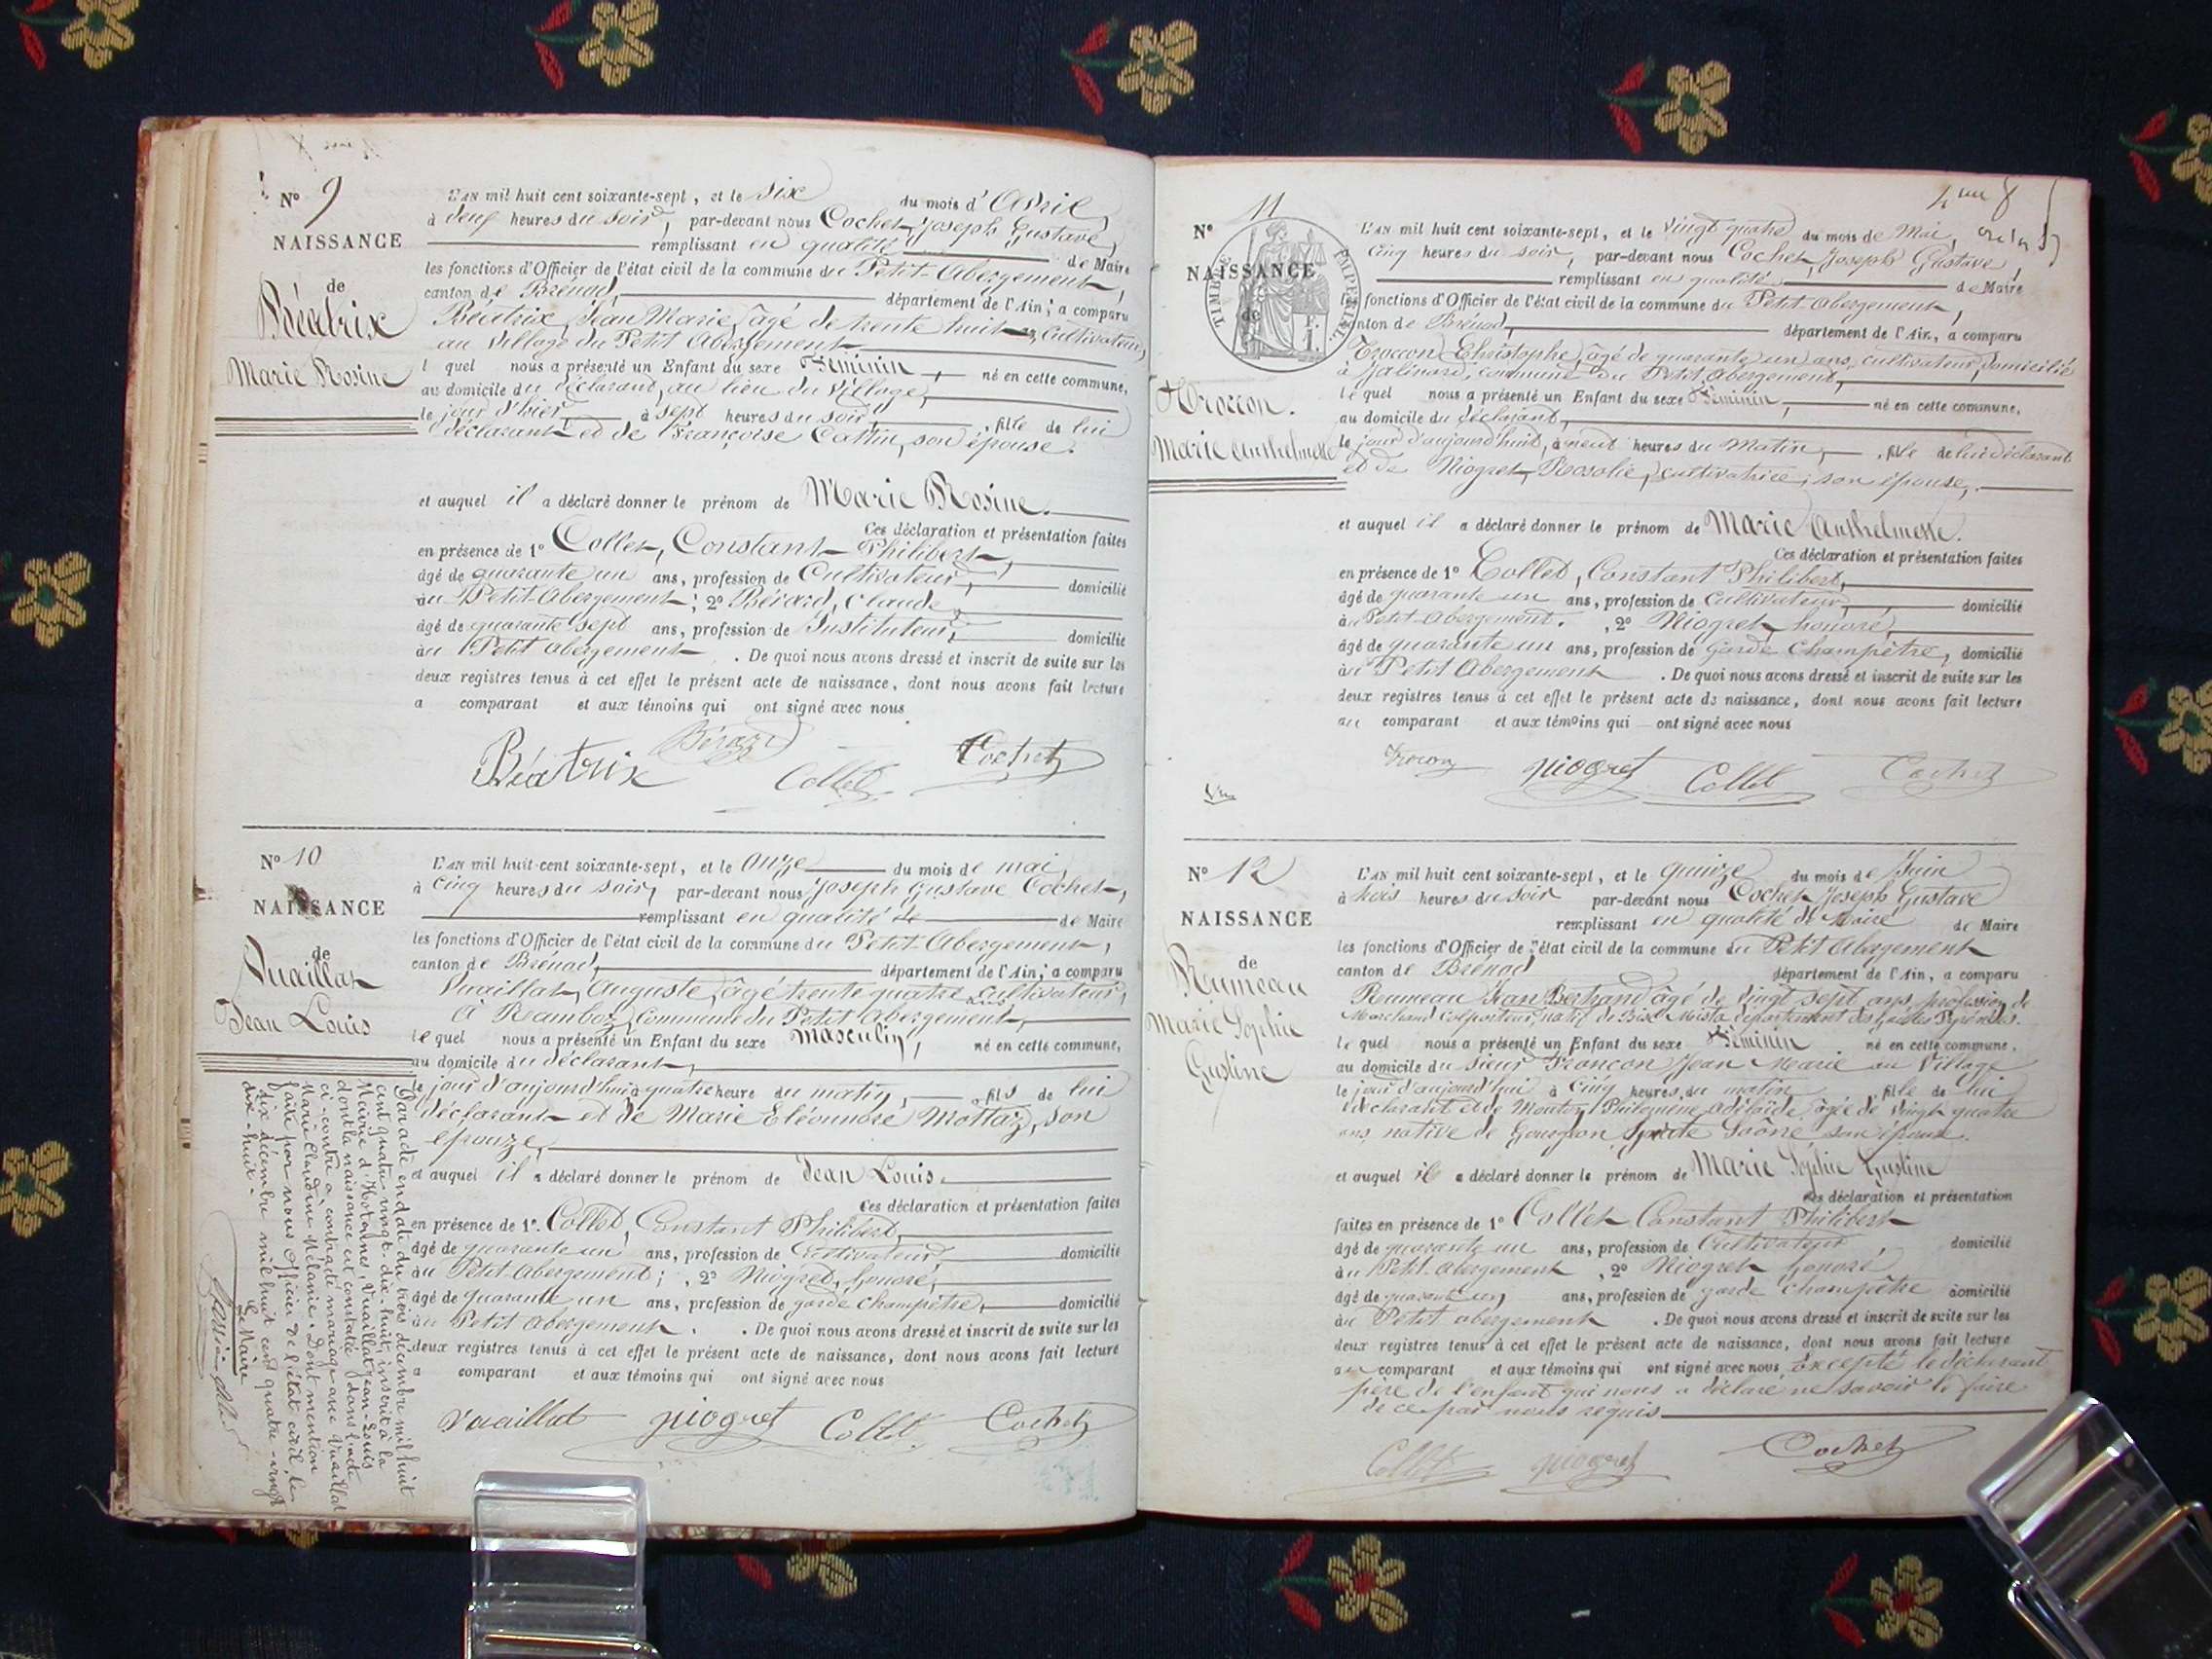 N° 9
NAISSANCE
de
Béatrix
Marie Rosine
L'AN mil huit cent soixante-sept, et le six du mois d'Avril,
à neuf heures du soir, par-devant nous Cochet, Joseph Gustave,
remplissant en qualité de Maire
les fonctions d'Officier de l'état civil de la commune du Petit-Abergement,
canton de Brénod, département de l'Ain, a comparu
Béatrix, Jean Marie, âgé de trente huit ans, cultivateur,
au village du Petit Abergement
lequel nous a présenté un Enfant du sexe Féminin, né en cette commune,
au domicile du déclarant, au lieu du village,
le jour d'hier, à sept heures du soir, fille de lui
déclarant et de Françoise Cattin, son épouse.
et auquel il a déclaré donner le prénom de Marie Rosine.
Ces déclaration et présentation faites
en présence de 1° Collet, Constant Philibert,
âgé de quarante un ans, profession de Cultivateur, domicilié
au Petit-Abergement; 2° Bérard, Claude,
âgé de quarante sept ans, profession de Instituteur, domicilié
au Petit Abergement. De quoi nous avons dressé et inscrit de suite sur les
deux registres tenus à cet effet le présent acte de naissance, dont nous avons fait lecture
a comparant et aux témoins qui ont signé avec nous
Béatrix Bérard Collet Cochet
N° 10
NAISSANCE
de
Vuaillat
Jean Louis
L'AN mil huit cent soixante-sept, et le onze du mois de mai,
à cinq heures du soir, par-devant nous Joseph Gustave Cochet,
remplissant en qualité de de Maire
les fonctions d'Officier de l'état civil de la commune du Petit-Abergement,
canton de Brénod, département de l'Ain, a comparu
Vuaillat, Auguste, âgé trente quatre ans cultivateur,
à Ramboz, Commune du Petit Abergement,
lequel nous a présenté un Enfant du sexe Masculin, né en cette commune,
au domicile du déclarant,
le jour d'aujourd'hui à quatre heure du matin, fils de lui
déclarant et de Marie Eléounore Mottaz, son
épouze,
et auquel il a déclaré donner le prénom de Jean Louis.
Ces déclaration et présentation faites
en présence de 1° Collet, Constant Philibert,
âgé de quarante un ans, profession de Cultivateur, domicilié
au Petit-Abergement; 2° Niogret, honoré,
âgé de quarante un ans, profession de garde champêtre, domicilié
au Petit Abergement. De quoi nous avons dressé et inscrit de suite sur les
deux registres tenus à cet effet le présent acte de naissance, dont nous avons fait lecture
a comparant et aux témoins qui ont signé avec nous
Vuaillat Niogret Collet Cochet
Par acte en date du trois décembre mil huit
cent quatre-vingt-dix-huit, inscrit à la
Mairie d'Hotonnes, Vuaillat Jean-Louis
dont la naissance est constatée dans l'acte
ci-contre a contracté mariage avec Vuaillat
Marie Claudine Mélanie. Dont mention
faite par nous Officier de l'état civil, le
dix décembre mil huit cent quatre-vingt
dix-huit.
Le Maire
N° 11
NAISSANCE
de
TIMBRE IMPÉRIAL
Troccon.
Marie Anthelmette
L'AN mil huit cent soixante-sept, et le vingt quatre du mois de Mai,
cinq heures du soir, par-devant nous Cochet, Joseph Gustave,
remplissant en qualité de Maire
les fonctions d'Officier de l'état civil de la commune du Petit-Abergement,
canton de Brénod, département de l'Ain, a comparu
Troccon, Christophe, âgé de quarante un ans, cultivateur, domicilié
à Jalinard, commune du Petit Abergement,
lequel nous a présenté un Enfant du sexe Féminin, né en cette commune,
au domicile du déclarant,
le jour d'aujourd'huit, à neuf heures du Matin, fille de lui déclarant
et de Niogret, Rosalie, cultivatrice, son épouse,
et auquel il a déclaré donner le prénom de Marie Anthelmette.
Ces déclaration et présentation faites
en présence de 1° Collet, Constant Philibert,
âgé de quarante un ans, profession de Cultivateur, domicilié
au Petit Abergement. 2° Niogret, honoré,
âgé de quarante un ans, profession de garde Champêtre, domicilié
au Petit Abergement. De quoi nous avons dressé et inscrit de suite sur les
deux registres tenus à cet effet le présent acte de naissance, dont nous avons fait lecture
au comparant et aux témoins qui ont signé avec nous
Niogret Collet Cochet
Vu
N° 12
NAISSANCE
de
Rumeau
Marie Sophie
Gustine
L'AN mil huit cent soixante-sept, et le quinze du mois de Juin
à trois heures du soir par-devant nous Cochet Joseph Gustave
remplissant en qualité de Maire de Maire
les fonctions d'Officier de l'état civil de la commune du Petit Abergement
canton de Brénod département de l'Ain, a comparu
Rumeau Jean Bertrand âgé de vingt sept ans profession de
Marchand Colporteur, natif de département des hautes Pyrénées.
lequel nous a présenté un Enfant du sexe Féminin né en cette commune,
au domicile du sieur Jean Marie au Village
le jour d'aujourd'hui à cinq heures du matin, fille de lui
déclarant et de Philomène Adélaïde, âgée de vingt quatre
ans, native de Saône son épouse.
et auquel il a déclaré donner le prénom de Marie Sophie Gustine
Ces déclaration et présentation
faites en présence de 1° Collet Constant Philibert
âgé de quarante un ans, profession de Cultivateur, domicilié
au Petit Abergement, 2° Niogret honoré
âgé de quarante un ans, profession de garde champêtre domicilié
au Petit abergement. De quoi nous avons dressé et inscrit de suite sur les
deux registres tenus à cet effet le présent acte de naissance, dont nous avons fait lecture
au comparant et aux témoins qui ont signé avec nous, excepté le déclarant
père de l'enfant qui nous a déclaré ne savoir le faire
de ce par nous requis
Collet Niogret Cochet